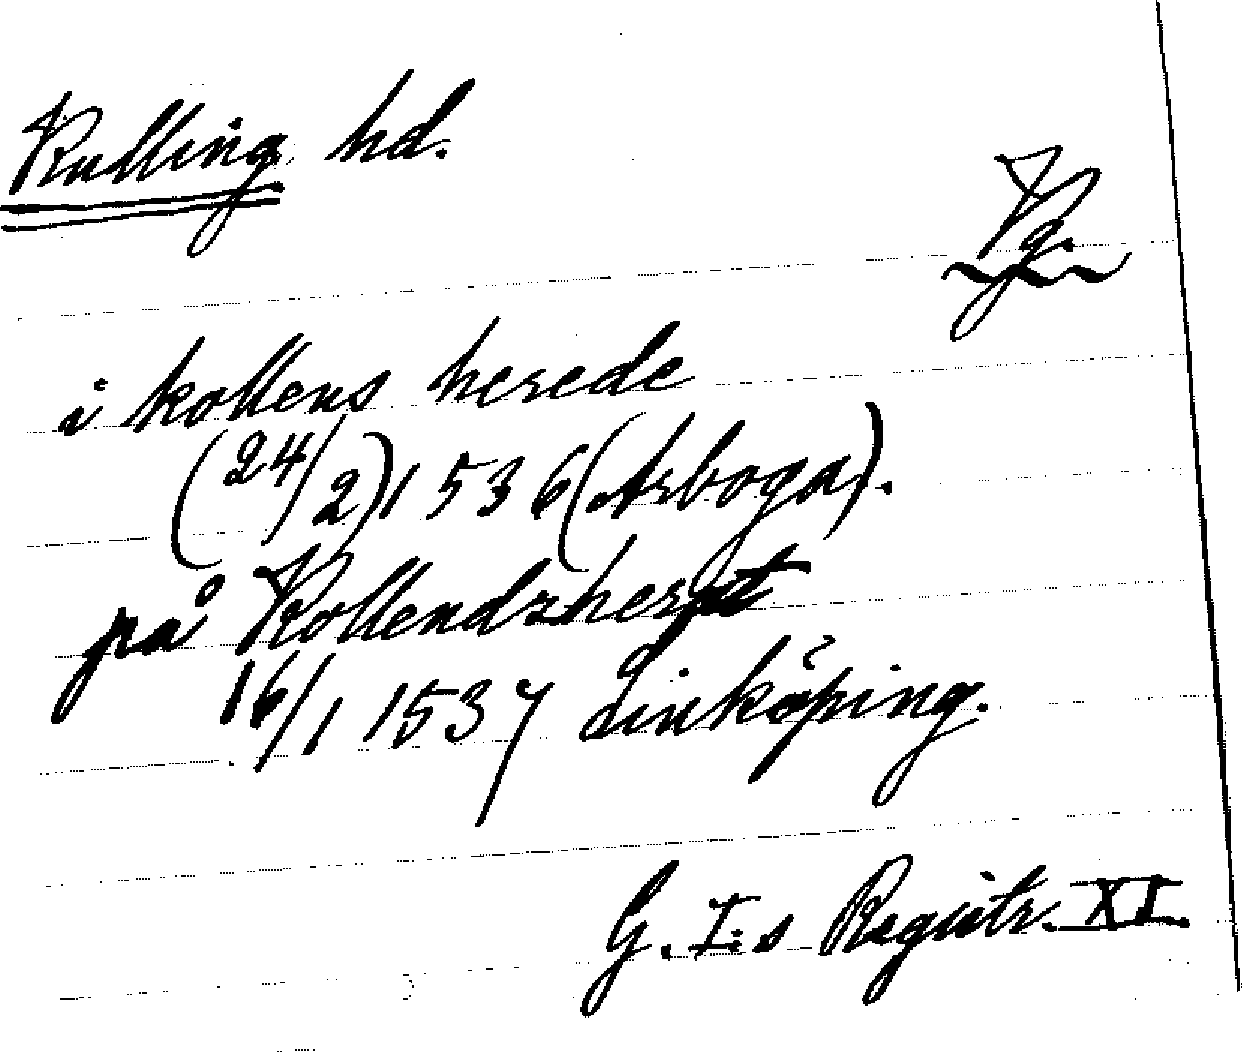 Kulling hd.
Vg.
i kollens herede
(24/2) 1536 (Arboga).
på Kollendzheret
16/1 1537 Linköping.
G. I:s Registr. XI.